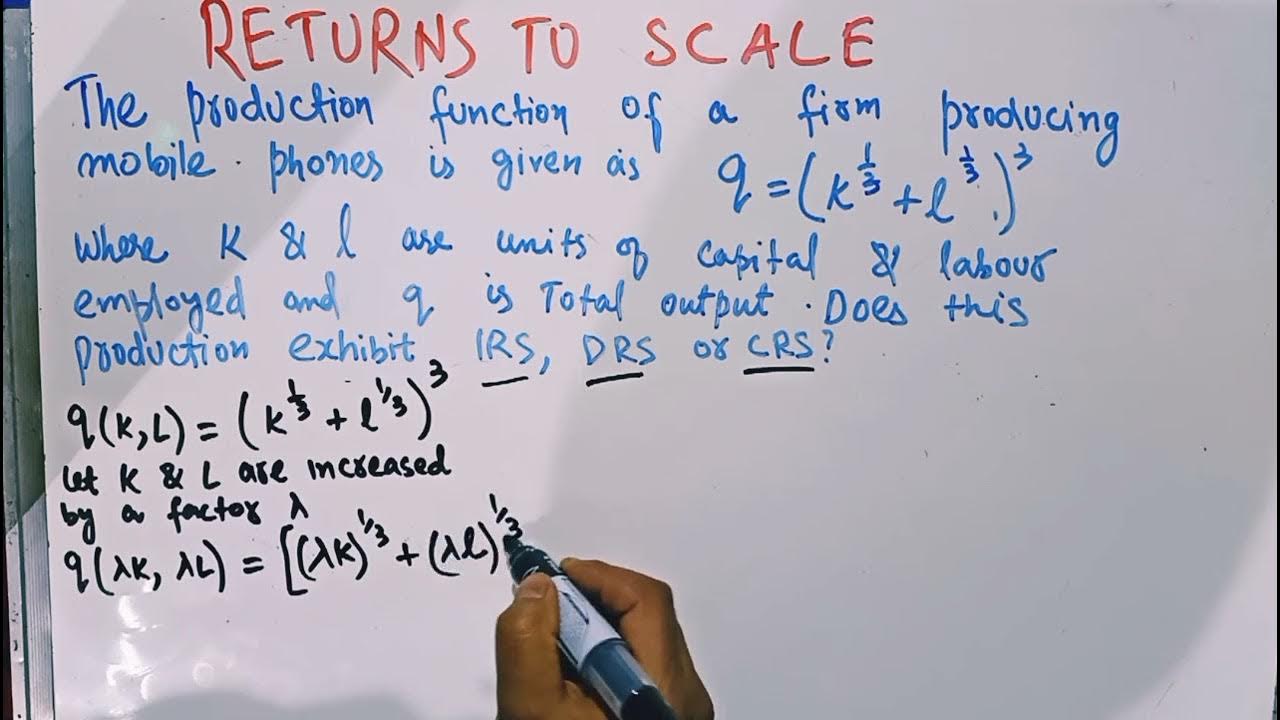 RETURNS TO SCALE
The production function of a firm producing
mobile phones is given as q = (k^{1/3} + l^{1/3})^3
where K & l are units of capital & labour
employed and q is Total output. Does this
production exhibit IRS, DRS or CRS?
q(K,L) = (k^{1/3} + l^{1/3})^3
Let K & L are increased
by a factor λ
q(λK, λL) = [(λK)^{1/3} + (λl)^{1/3}